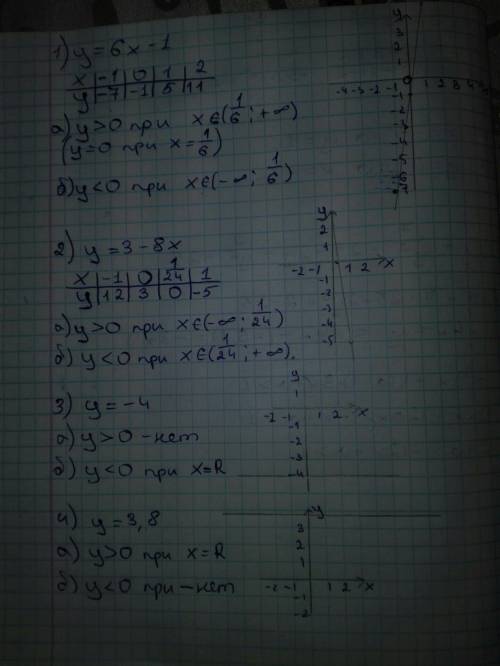 1) y = 6x - 1
x | -1 | 0 | 1 | 2
y | -7 | -1 | 5 | 11
а) y > 0 при x∈(1/6; +∞)
(y = 0 при x = 1/6)
б) y < 0 при x∈(-∞; 1/6)
y
3
2
1
-4 -3 -2 -1 1 2 3 4
-1
-2
-3
-4
-5
-6
2) y = 3 - 8x
x | -1 | 0 | 1/24 | 1
y | 12 | 3 | 0 | -5
а) y > 0 при x∈(-∞; 1/24)
б) y < 0 при x∈(1/24; +∞).
y
2
1
-2 -1 1 2 x
-1
-2
-3
-4
-5
3) y = -4
а) y > 0 - нет
б) y < 0 при x = R
y
1
-2 -1 1 2 x
-1
-2
-3
-4
4) y = 3,8
а) y > 0 при x = R
б) y < 0 при - нет
y
3
2
1
-2 -1 1 2 x
-1
-2